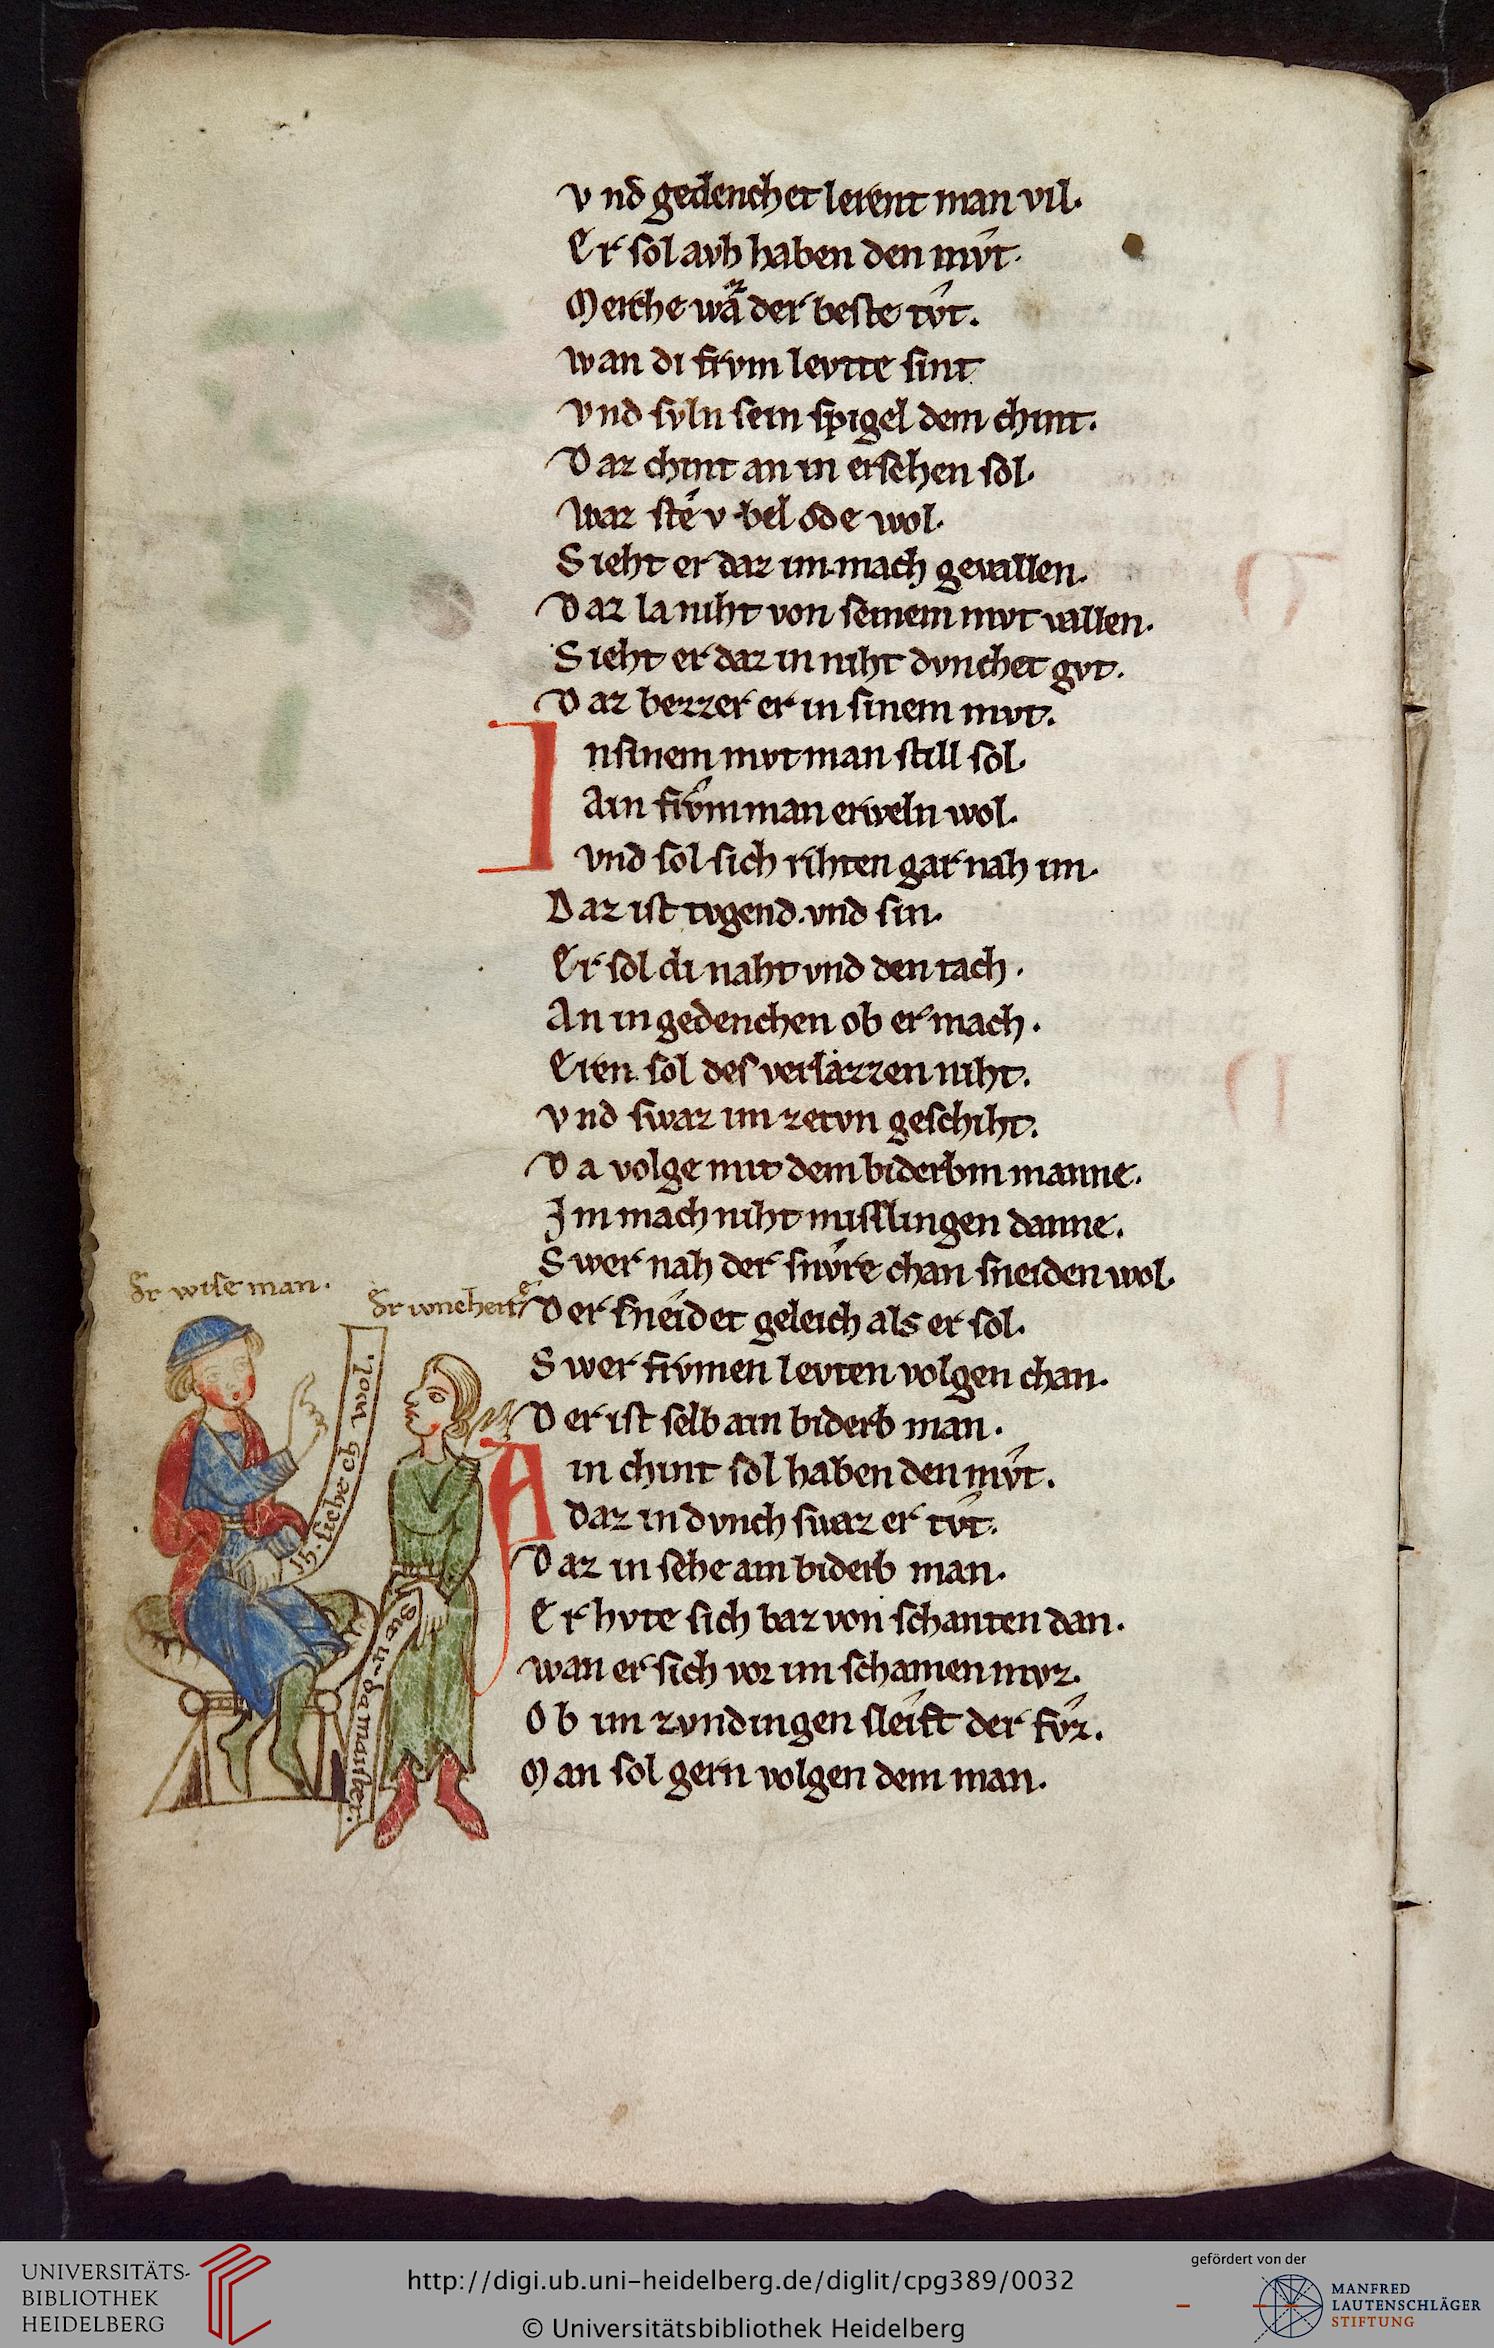 vnd gedenchet lerent man vil.
Er sol avh haben den mvt.
Merche waz der beste tvt.
wan di frvm levtte sint
vnd svln sein spigel dem chint.
Daz chint an in ersehen sol.
waz ste vbel ode wol.
Sieht er daz im mach gevallen.
Daz la niht von seinem mvt vallen.
Sieht er daz in niht dvnchet gvt.
Daz bezzer er in sinem mvt.
In sinem mvt man still sol
Ain frvm man erweln wol.
vnd sol sich rihten gar nah im.
Daz ist tvgend vnd sin.
Er sol di naht vnd den tach.
An in gedenchen ob er mach.
Eren sol des verlazzen niht.
vnd swaz im zetvn geschiht.
Da volge mit dem biderbm manne.
Im mach niht misslingen danne.
Swer nah der snvre chan sneiden wol.
Der sneidet geleich als er sol.
Swer frvmen levten volgen chan.
Der ist selb ain biderb man.
Ain chint sol haben den mvt.
daz in dvnch swaz er tvt.
Daz in sehe ain biderb man.
Er hvte sich baz von schanten dan.
wan er sich vor im schamen mvz.
Ob im zvndingen sleift der fvz.
Man sol gern volgen dem man.
Der wise man.
Der ivncherre
Ih siche dich wol.
Sie n da maister.
UNIVERSITÄTS-
BIBLIOTHEK
HEIDELBERG
http://digi.ub.uni-heidelberg.de/diglit/cpg389/0032
© Universitätsbibliothek Heidelberg
gefördert von der
MANFRED
LAUTENSCHLÄGER
STIFTUNG